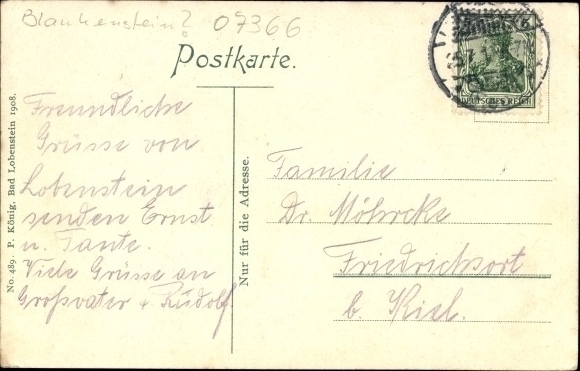 Blankenstein? 07366
Postkarte.
5
DEUTSCHES REICH
Freundliche
Grüsse von
Lobenstein
senden Ernst
u. Tante.
Viele Grüsse an
Grosvater + Rudolf
No. 489. P. König, Bad Lobenstein 1908.
Nur für die Adresse.
Familie
Dr. Möhrcke
Friedrichsort
b. Kiel.